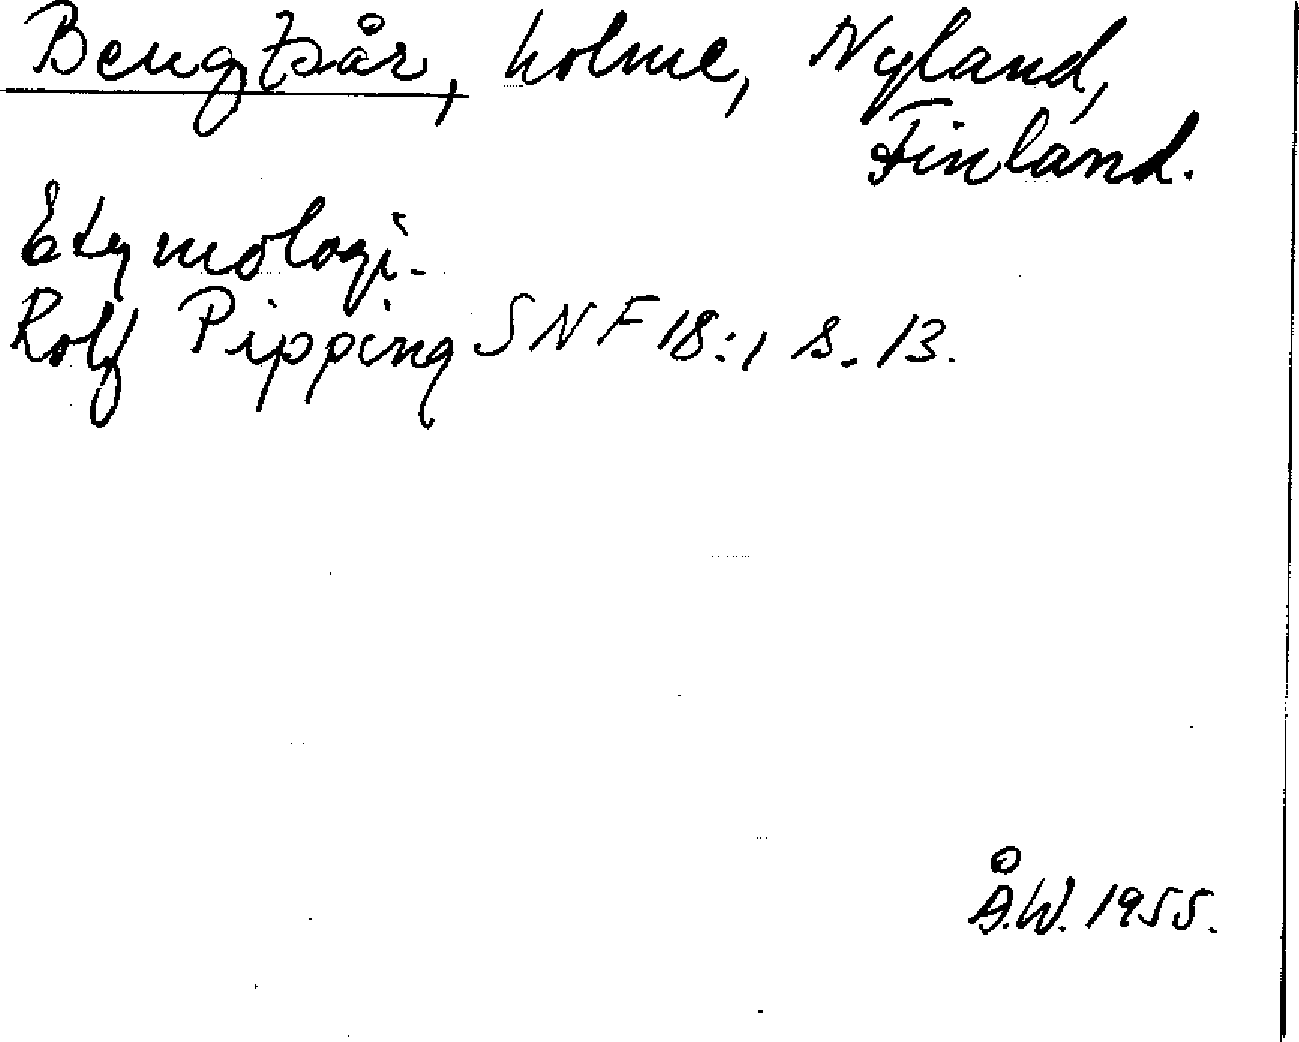 Bengtsår, holme, Nyland,
Finland.
Etymologi.
Rolf Pipping SNF 18:1 s. 13.
Å.W. 1955.